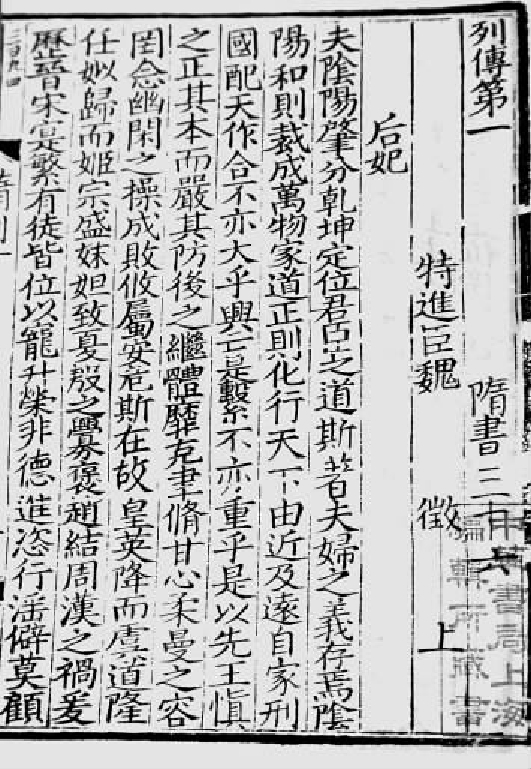 列傳第一　隋書三十六
特進臣魏　徵　上
后妃
夫陰陽肇分乾坤定位君臣之道斯著夫婦之義存焉陰
陽和則裁成萬物家道正則化行天下由近及遠自家刑
國配天作合不亦大乎興亡是繫不亦重乎是以先王慎
之正其本而嚴其防後之繼體靡克聿脩甘心柔曼之容
罔念幽閑之操成敗攸屬安危斯在故皇英降而虞道隆
任姒歸而姬宗盛妹妲致夏殷之釁褒趙結周漢之禍爰
歷晉宋寔繁有徒皆位以寵升榮非德進恣行淫僻莫顧
中華書局上海
編輯所藏書